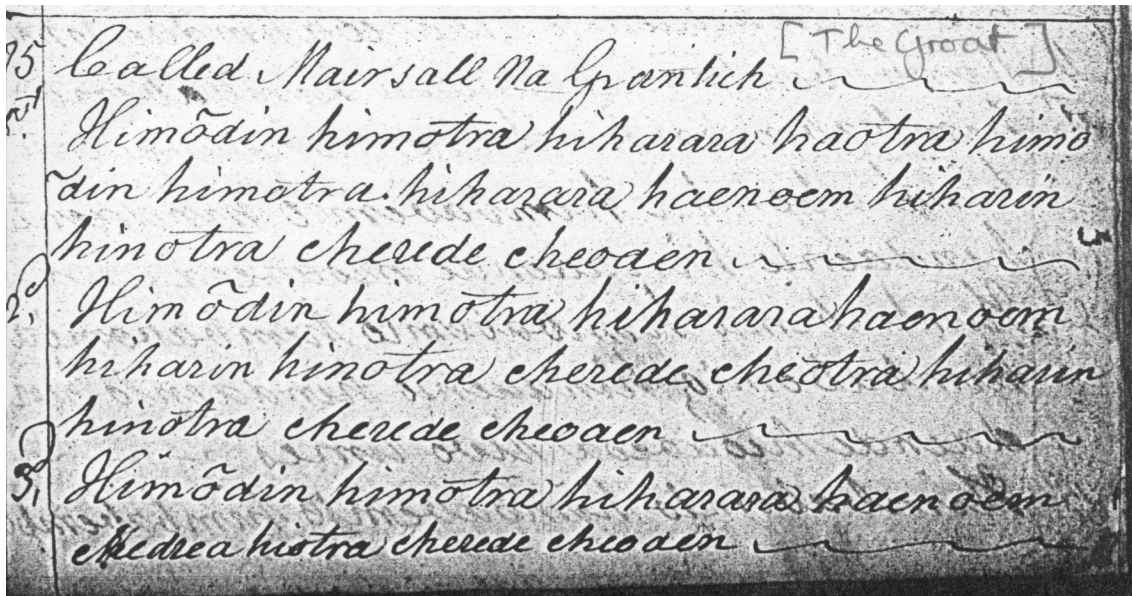 [The Groat]
75 Called Mairsall Na Grainlich
1st Himõdin himotra hiharara haotra himo
õdin himotra hiharara haenoem hiharin
hinotra cherede cheoaen
2d Himõdin himotra hiharara haenoem
hiharin hinotra cherede cheotra hiharin
hinotra cherede cheoaen
3d Himõdin himotra hiharara haenoem
chedrea hiotra cherede cheoden